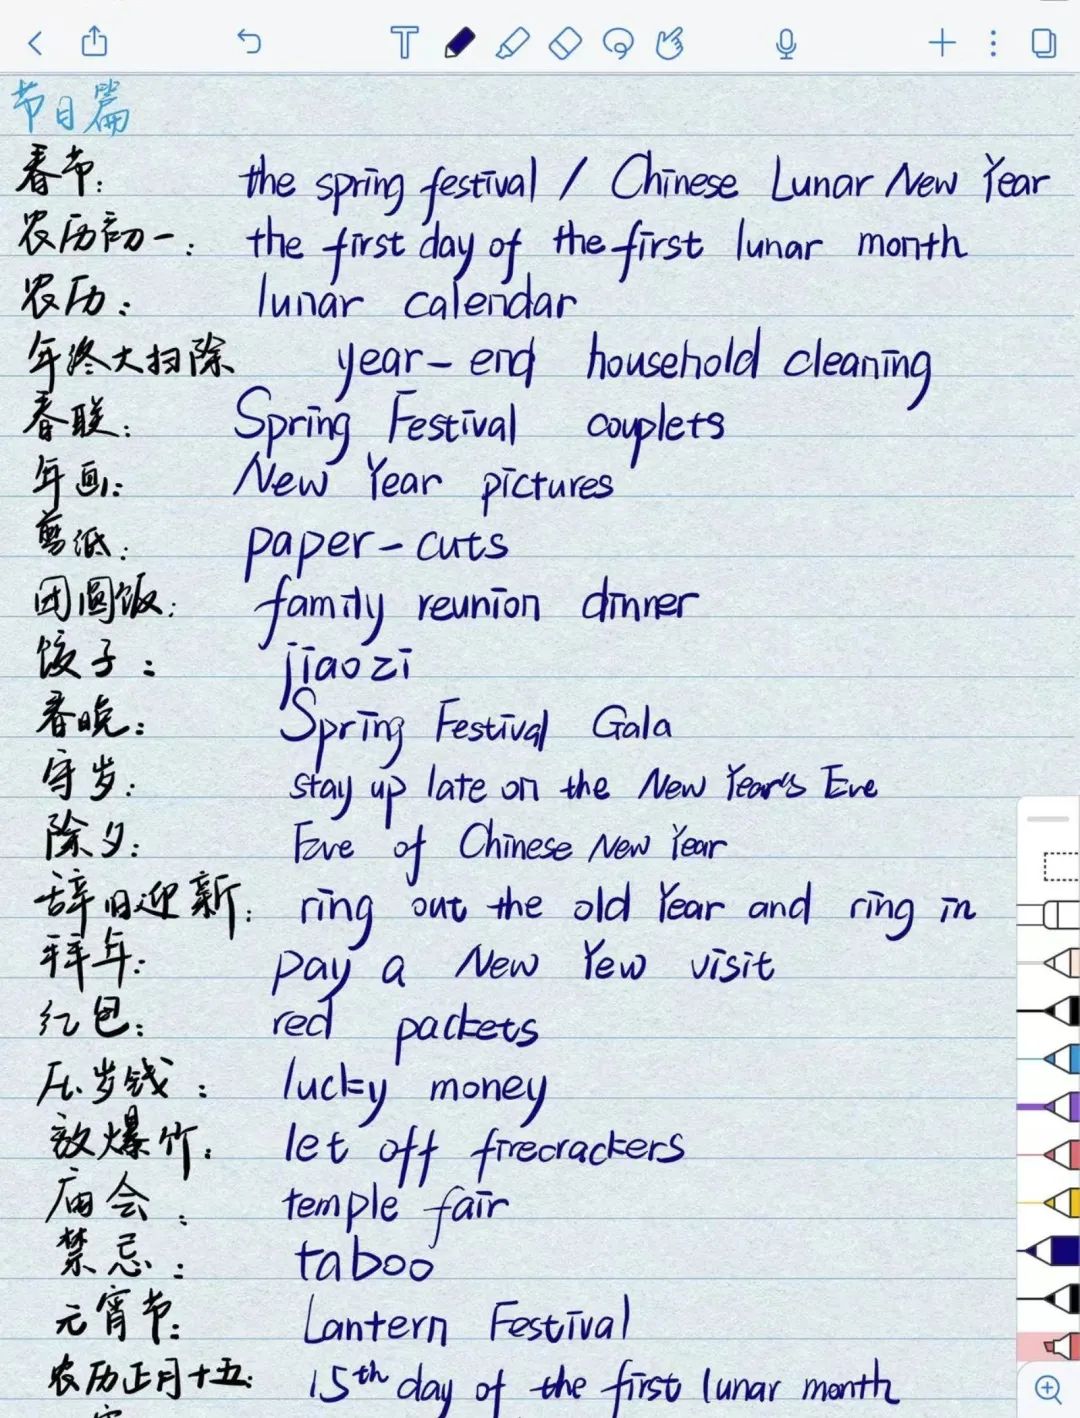 节日篇
春节: the spring festival / Chinese Lunar New Year
农历初一: the first day of the first lunar month
农历: lunar calendar
年终大扫除 year-end household cleaning
春联: Spring Festival couplets
年画: New Year pictures
剪纸: paper-cuts
团圆饭: family reunion dinner
饺子: jiaozi
春晚: Spring Festival Gala
守岁: stay up late on the New Year's Eve
除夕: Eve of Chinese New Year
辞旧迎新: ring out the old Year and ring in
拜年: pay a New Yew visit
红包: red packets
压岁钱: lucky money
放爆竹: let off firecrackers
庙会: temple fair
禁忌: taboo
元宵节: Lantern Festival
农历正月十五: 15th day of the first lunar month